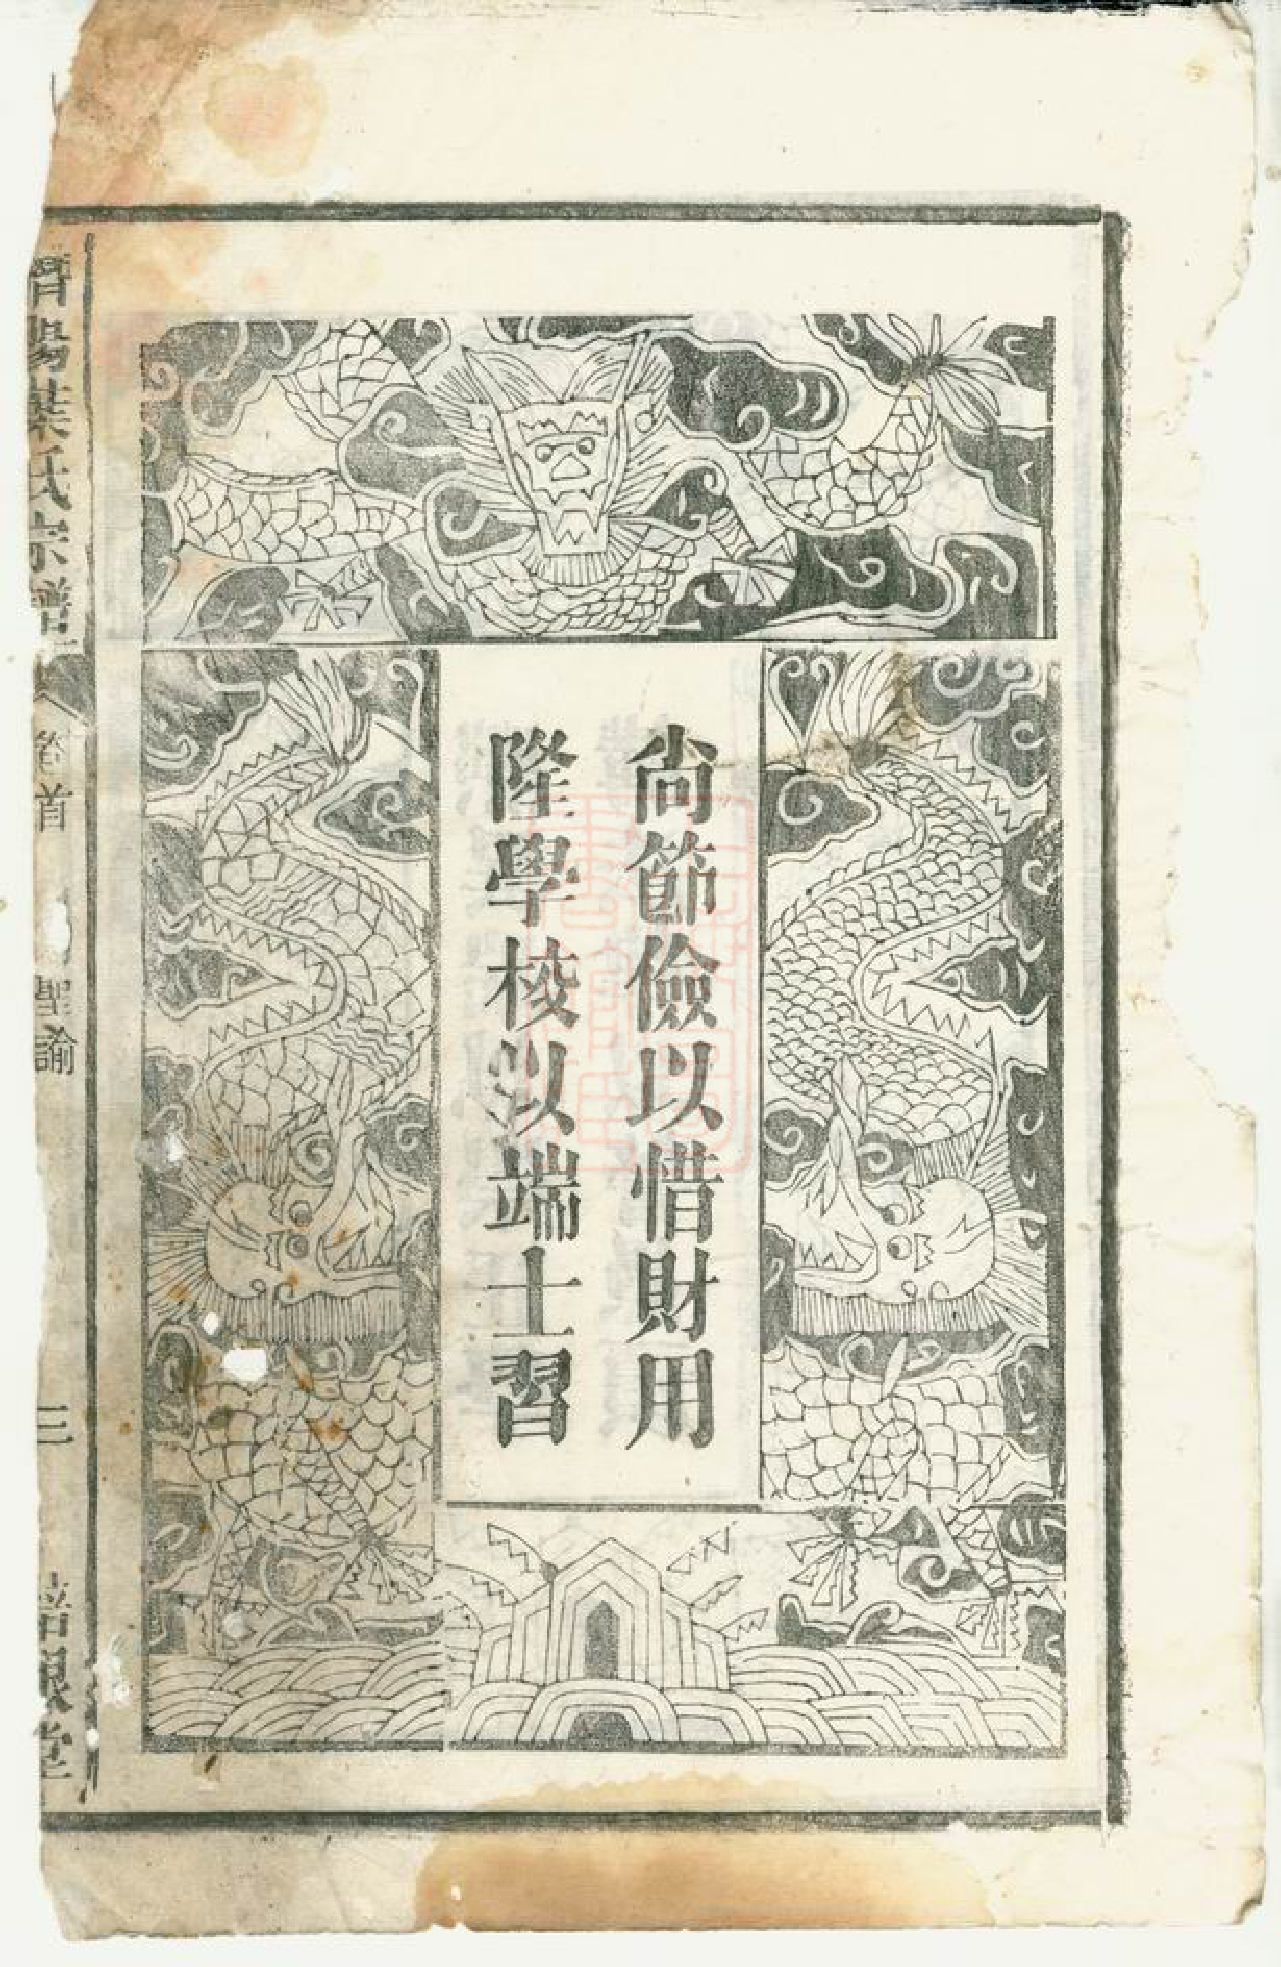 尚節儉以惜財用
隆學校以端士習
陽葉氏宗譜
卷首
聖諭
三
堂